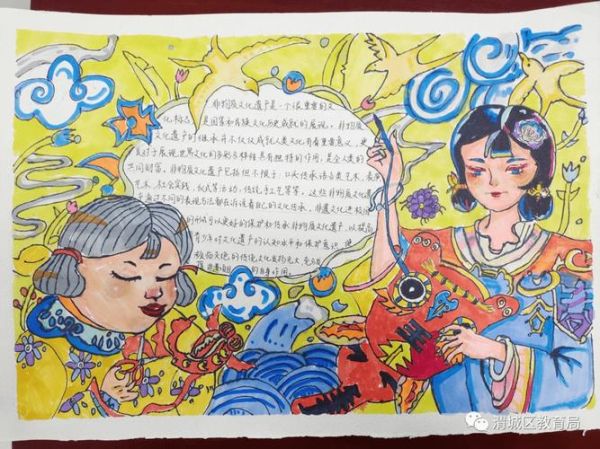 非物质文化遗产是一个很重要的文
化标志,是国家和民族文化历史成就的展现。非物质
文化遗产的继承并不仅仅对人类文化有着重要意义,更
对于展现世界文化的多样多样性具有独特的作用,是全人类的
共同财富。非物质文化遗产包括但不限于:口头传承语言类艺术、表演
艺术、社会实践、仪式等活动、传统手工艺等等,这些非物质文化遗
产通过不同的表现方法都在诉说着自己的文化传承。非遗文化进校
可以更好的保护和传承非物质文化遗产,以提高
青少年对文化遗产的认知水平和保护意识,使
优秀的传统文化发扬光大
的自身作用。
清城区教育局